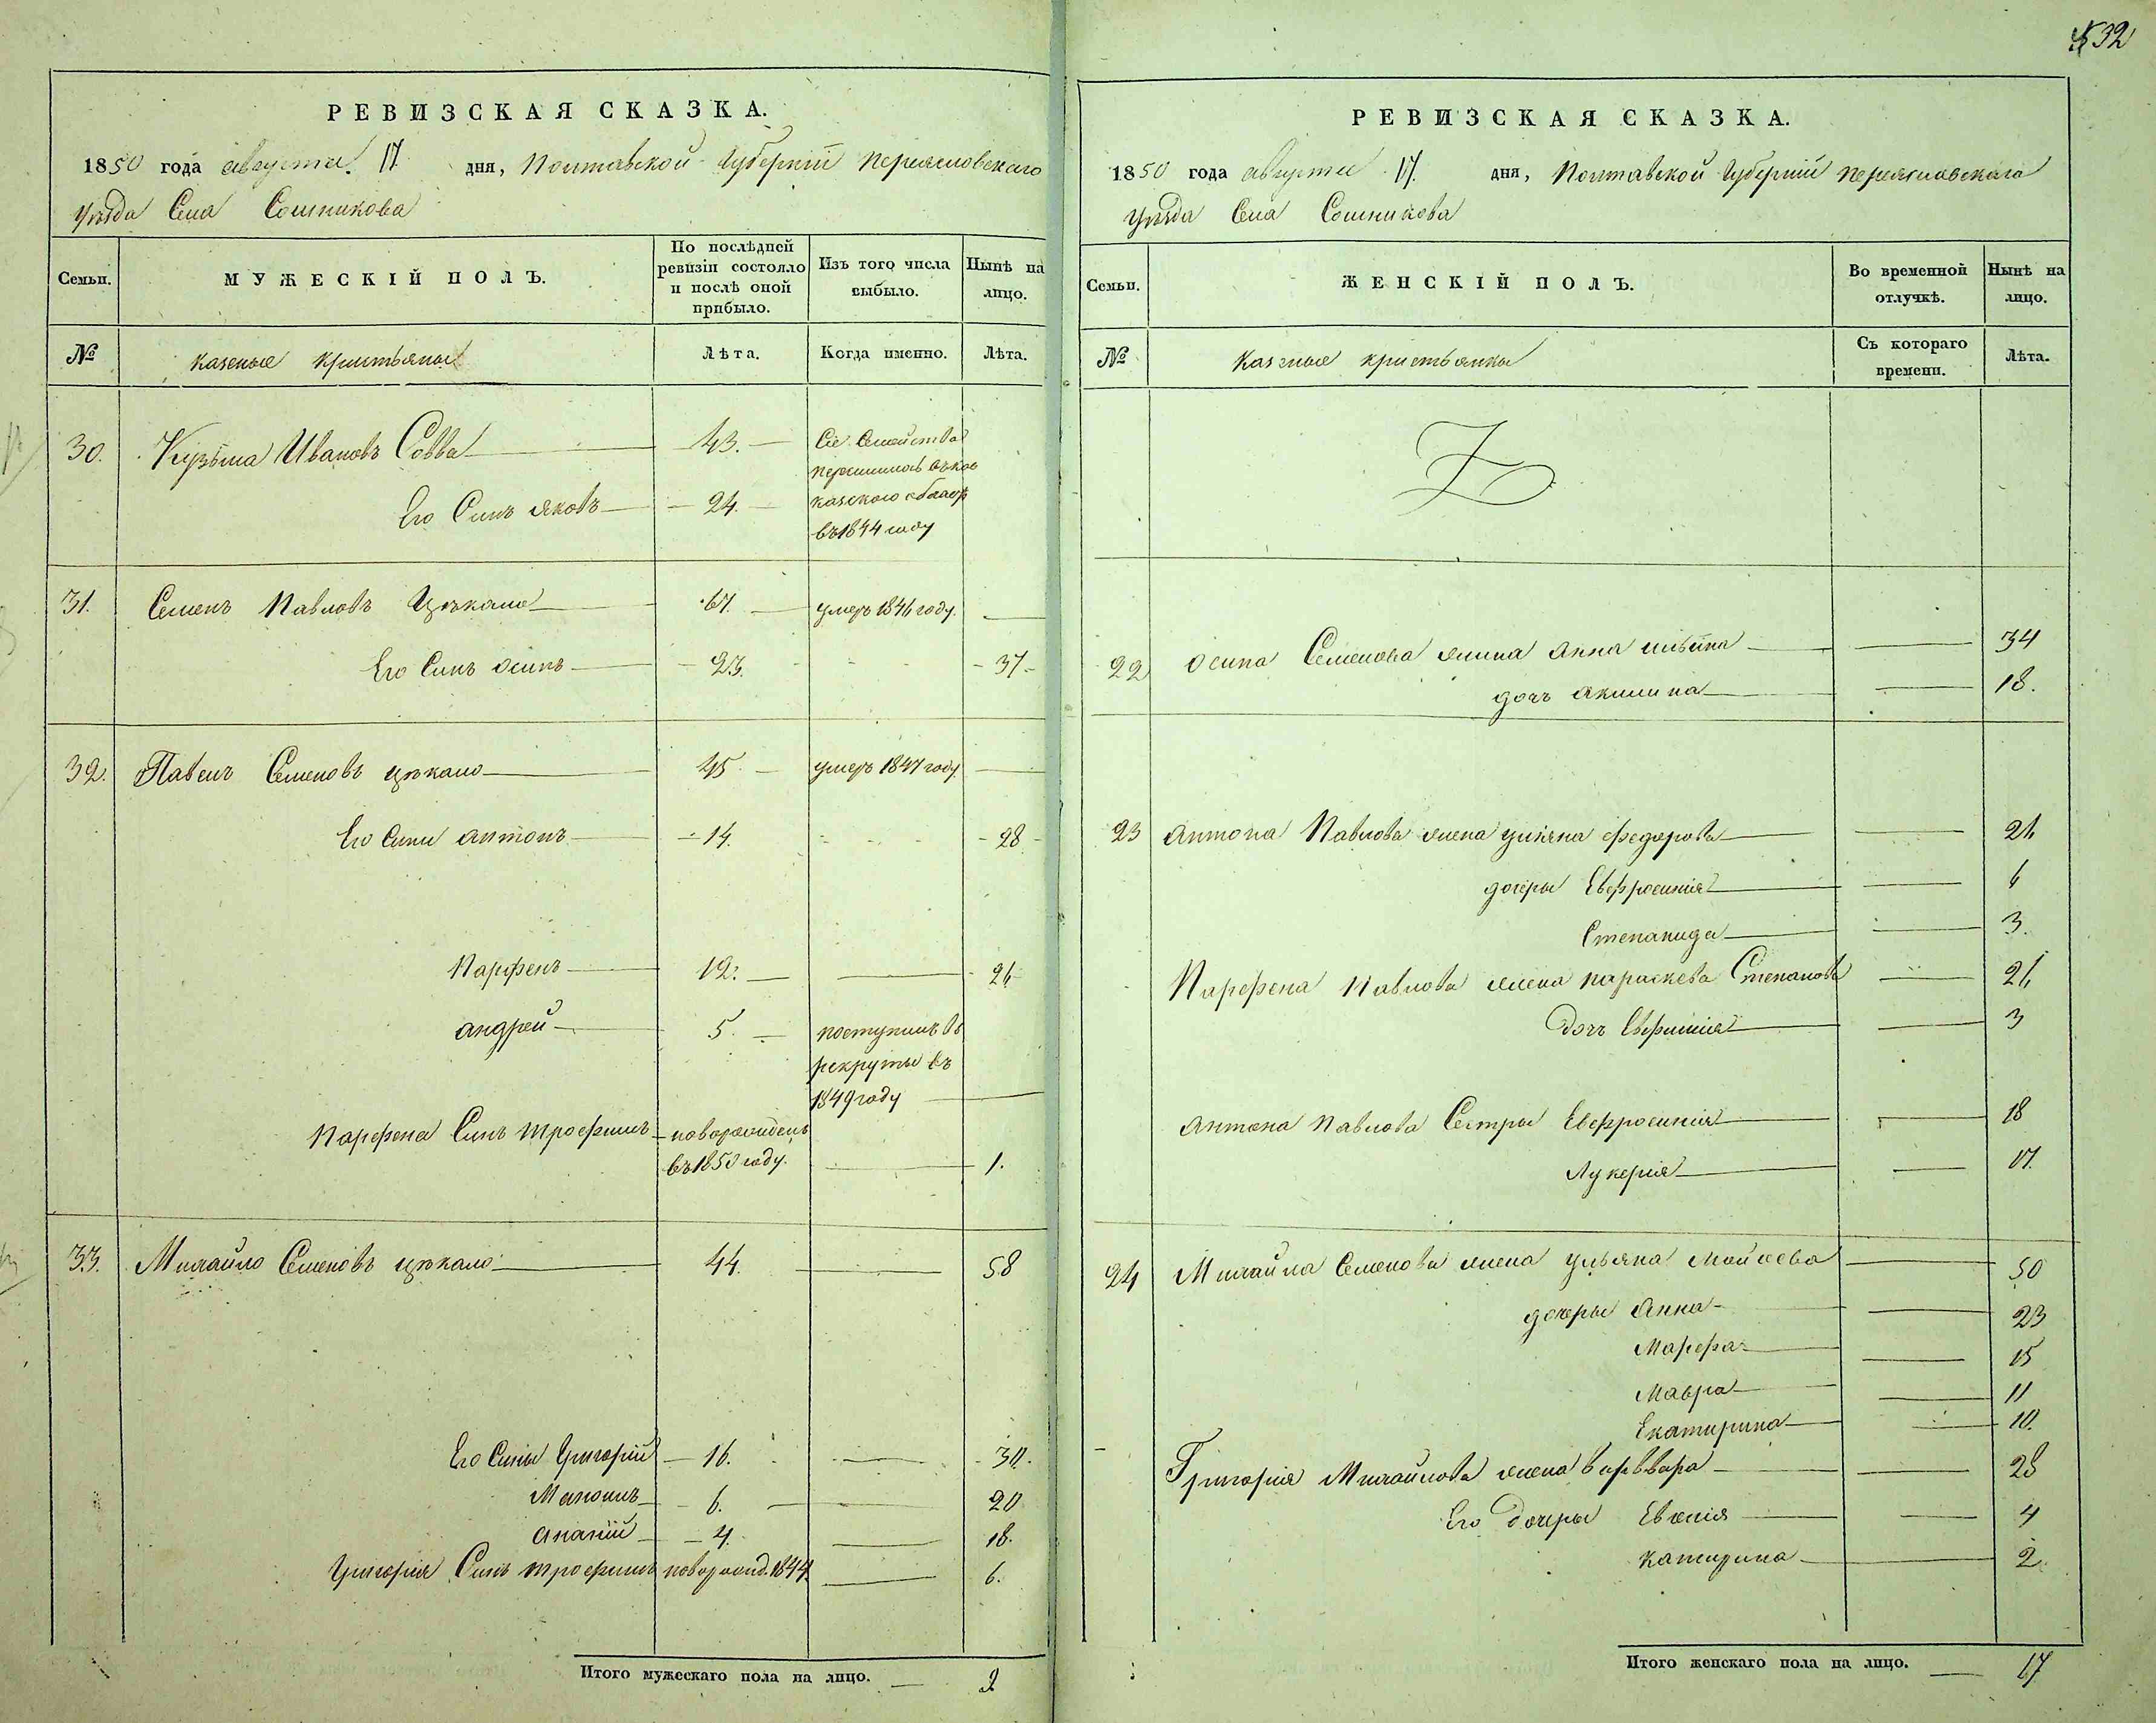 532
РЕВИЗСКАЯ СКАЗКА.
1850 года августа 17 дня, Полтавской Губерніи Переясловскаго
Уѣзда Села Сошникова
Семьи.
МУЖЕСКІЙ ПОЛЪ.
По послѣдней ревизіи состояло и послѣ оной прибыло.
Изъ того числа выбыло.
Нынѣ на лицо.
№
казеные кристьяны
Лѣта.
Когда именно.
Лѣта.
30. Кузьма Ивановъ Савва 43. Сіе Семейства
переселилось
Его Синъ Яковъ 24.
въ 1844 году
31. Семенъ Павловъ Цѣкало 67. умеръ 1846 году.
Его Синъ Осипъ 23. 37
32. Павелъ Семеновъ цѣкало 45 умеръ 1847 году
Его Сини антонъ 14. 28
Парфенъ 12. 26
андрей 5. поступилъ въ
рекруты въ
1849 году
Парфена Синъ трофимъ новорожденъ
въ 1850 году. 1.
33. Михайло Семеновъ цѣкало 44. 58
Его Сины Григорій 16. 30.
6. 20
ананій 4. 18.
Григорія Синъ трофимъ новорожд. 1844. 6.
Итого мужескаго пола на лицо. 9
РЕВИЗСКАЯ СКАЗКА.
1850 года августа 17. дня, Полтавской Губерніи переясловскаго
Уѣзда Села Сошникова
Семьи.
ЖЕНСКІЙ ПОЛЪ.
Во временной отлучкѣ.
Нынѣ на лицо.
№
Казеные кристьянки
Съ котораго времени.
Лѣта.
22 Осипа Семенова жина Анна 34
дочъ акилина 18.
23 Антона Павлова жена улияна федорова 26
дочеры Евфросинія 6
Степанида 3.
Парфена Павлова жена параскева Степанова 26
Дочъ Евфимія 3
Антона Павлова Сестры Евфросинія 18
Лукерія 17.
24 Михайла Семенова жена ульяна Мойсеева 50
дочеры Анна 23
Марфа 15
Мавра 11
Екатирина 10.
Григорія Михайлова жена варввара 28
Его Дочеры 4
Катирина 2.
Итого женскаго пола на лицо. 17